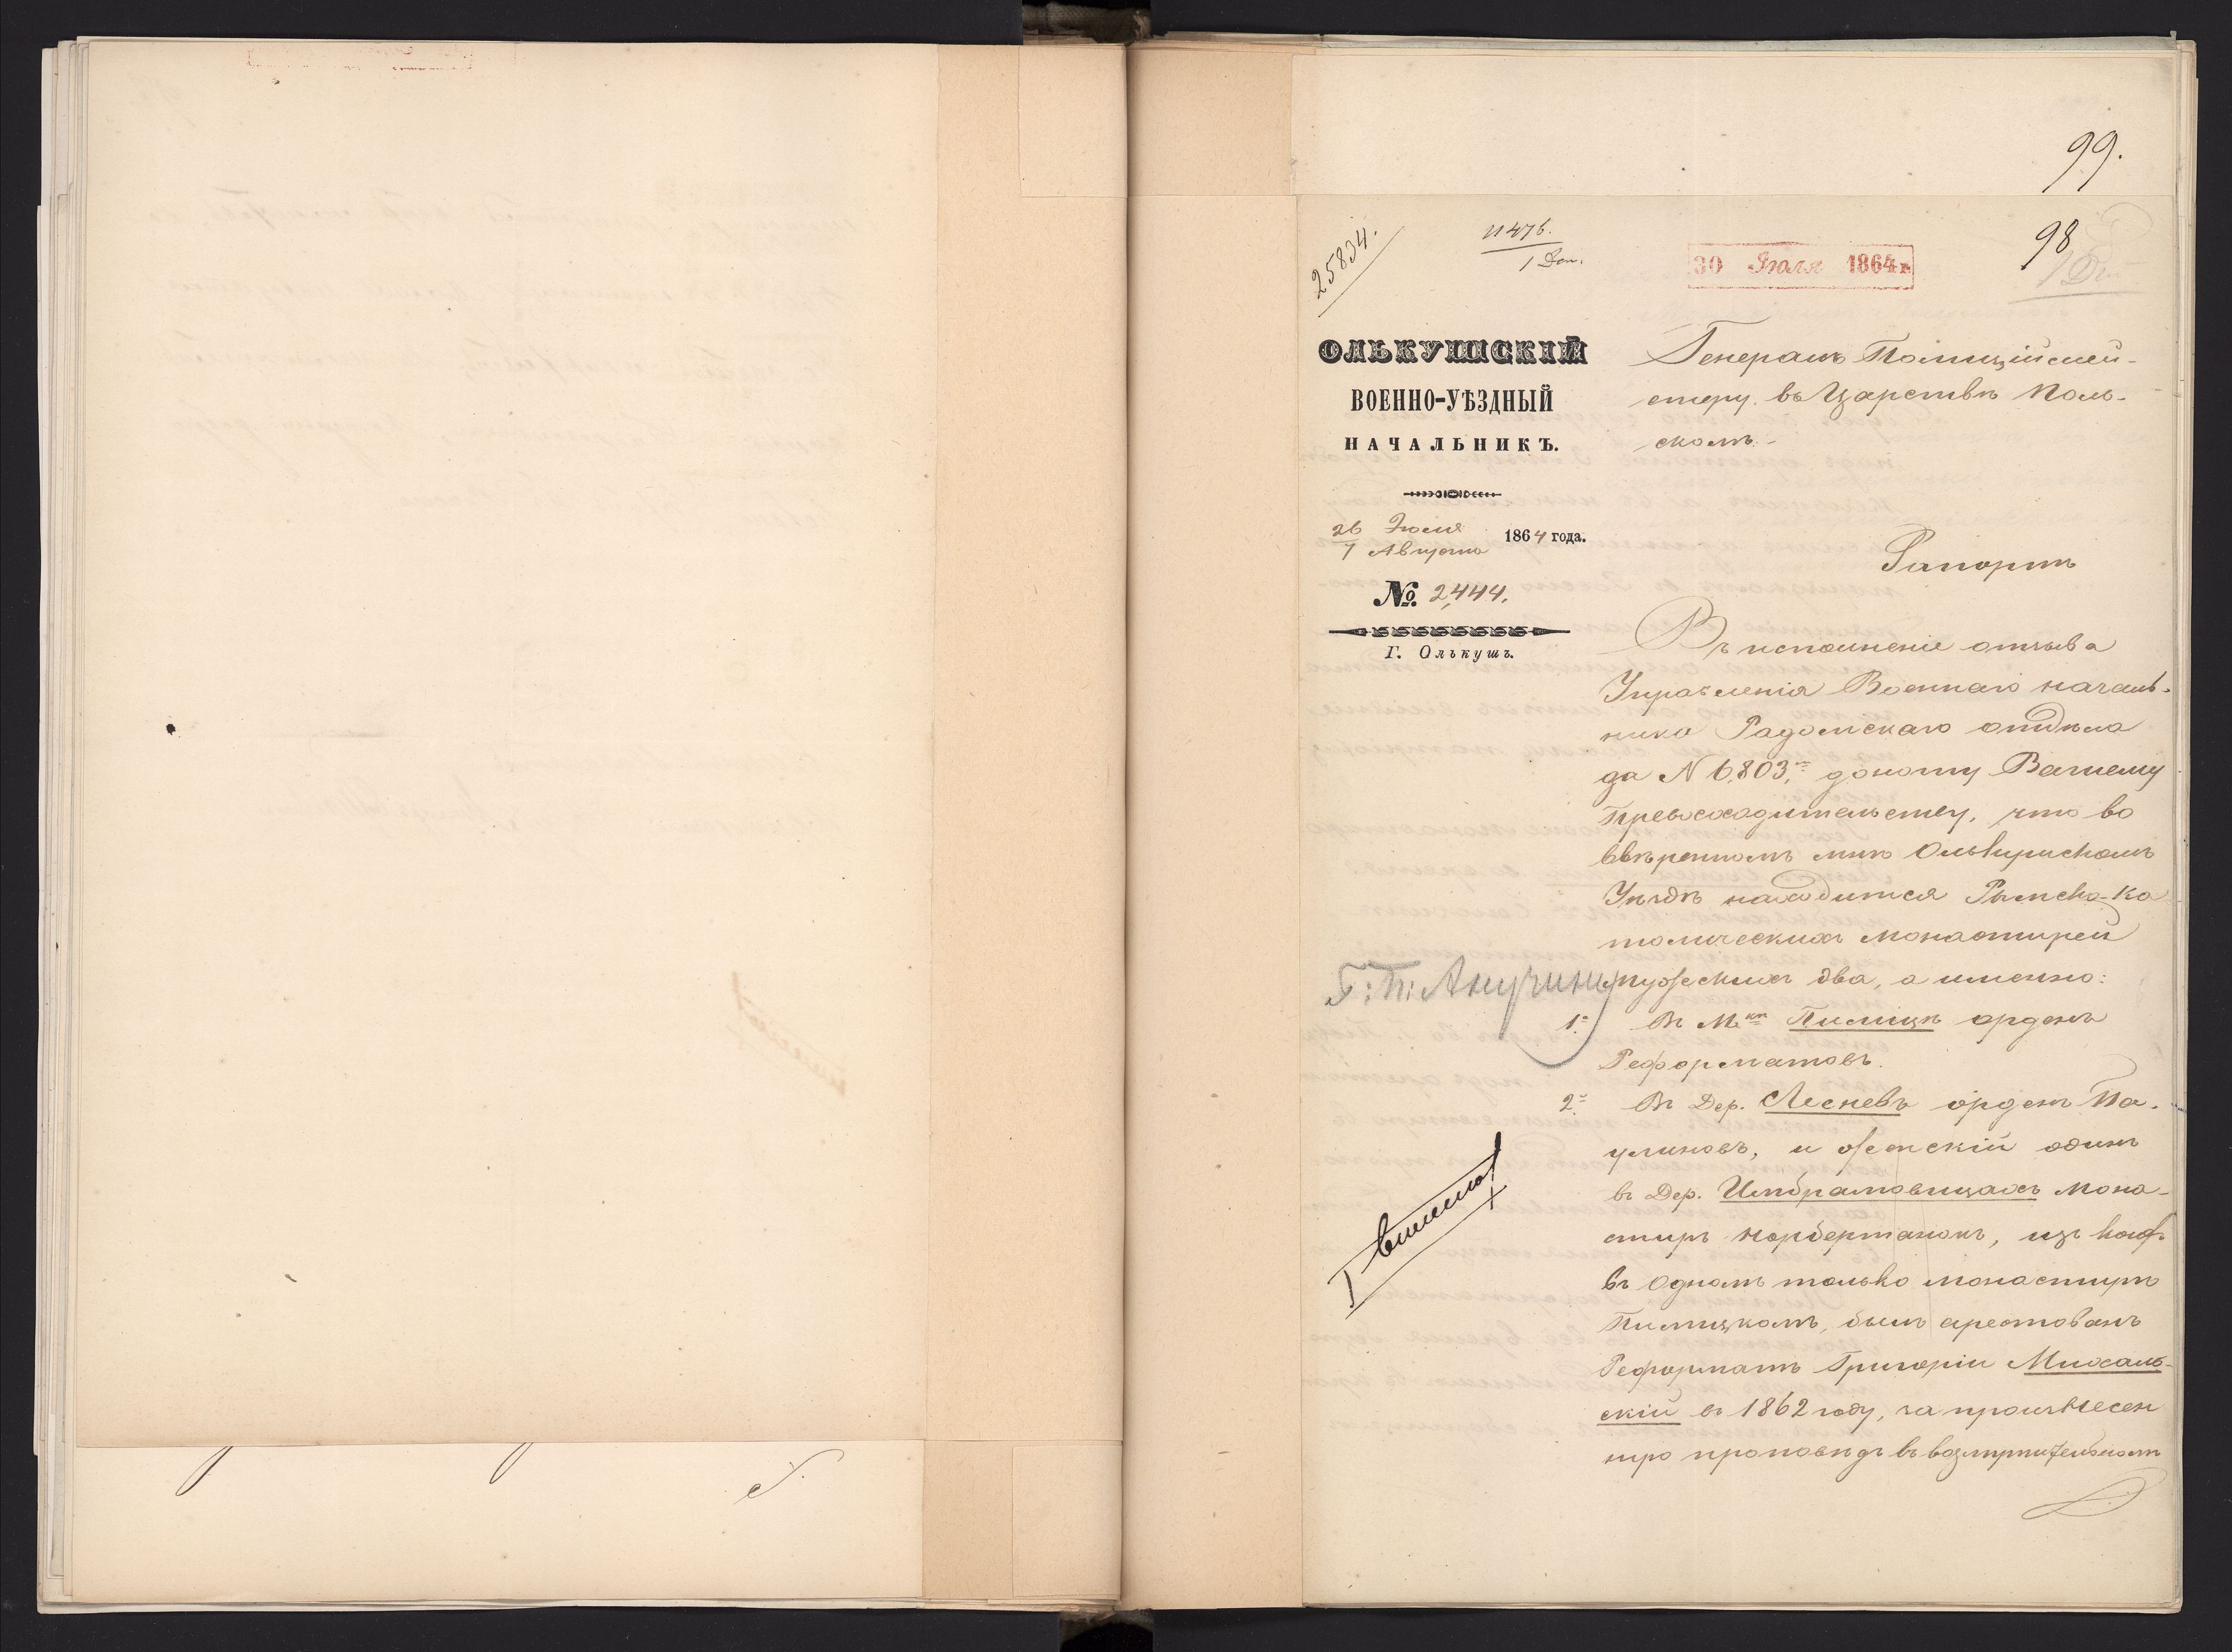 99.
98
25834.
11476.
1 Деп.
30 Іюля 1864 г.
ОЛЬКУШСКІЙ
ВОЕННО-УѢЗДНЫЙ
НАЧАЛЬНИКЪ.
26 Іюля
7 Августа 1864 года.
№ 2,444.
Г. Олькушъ.
Генералъ Полицій мей-
стеру въ Царствѣ Поль-
скомъ.
Рапортъ
Въ исполненіе отзыва
Управленія Военнаго началь-
ника Радомскаго отдѣла
за N 6,803, доношу Вашему
Превосходительству, что во
ввѣренномъ мнѣ Олькушскомъ
Уѣздѣ находится Римско-Ка
толическихъ монастырей
мужскихъ два, а именно:
Г: П: Анучину
1. Въ Мкѣ Пилицѣ орденъ
Реформатовъ.
2. Въ Дер. Лесневъ орденъ Па-
улиновъ, и женскій одинъ
въ Дер. Имбрамовицахъ мона-
стырь Норбертанокъ, изъ коихъ
въ одномъ только монастырѣ
Пилицкомъ, былъ арестованъ
Реформатъ Григорій Михаль-
скій въ 1862 году, за произнесен
ную проповѣдь въ возмутительномъ